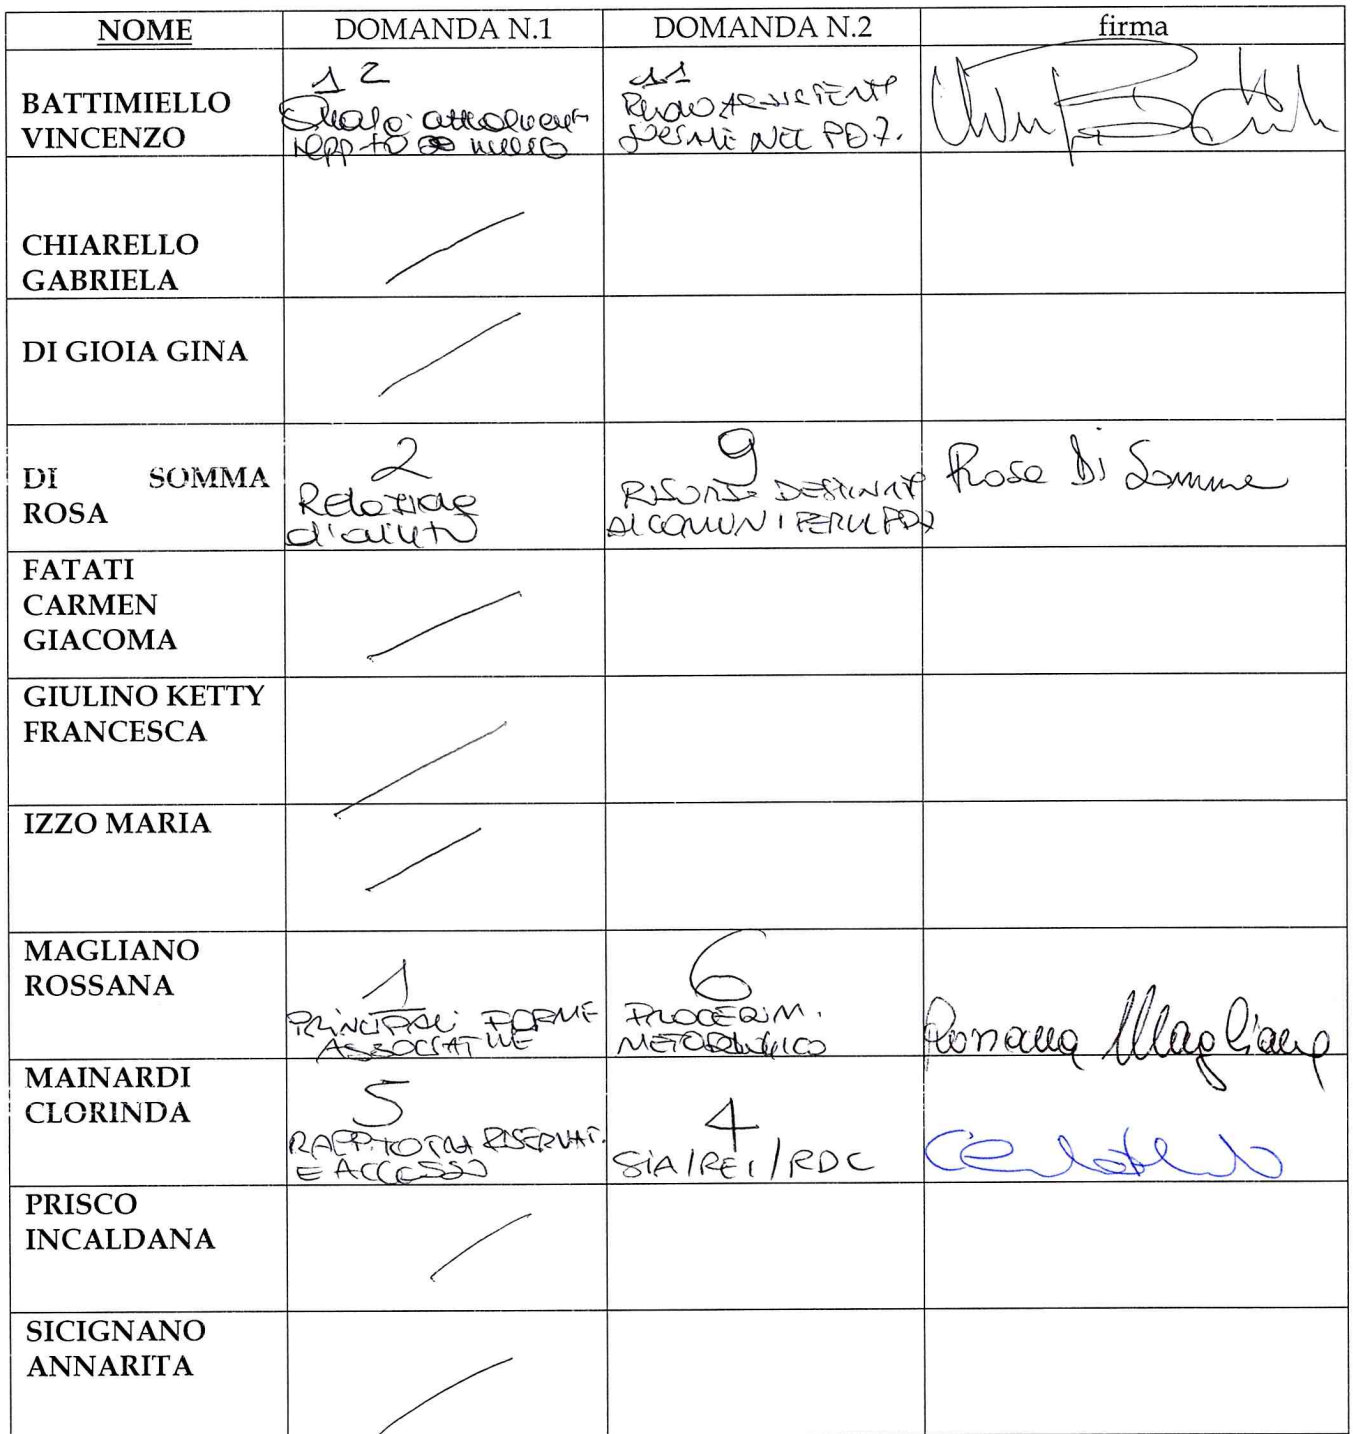 NOME DOMANDA N.1 DOMANDA N.2 firma
BATTIMIELLO
VINCENZO
12
rapp.to
11
RUOLO ASSISTENTE
SOCIALE NEL PDZ.
CHIARELLO
GABRIELA
DI GIOIA GINA
DI SOMMA
ROSA
2
Relazione
d'aiuto
9
RISORSE DESTINATE
AI COMUNI PER IL PDZ
Rosa Di Somma
FATATI
CARMEN
GIACOMA
GIULINO KETTY
FRANCESCA
IZZO MARIA
MAGLIANO
ROSSANA
1
PRINCIPALI FORME
ASSOCIATIVE
6
PROCEDIM.
METODOLOGICO
Rossana Magliano
MAINARDI
CLORINDA
5
RAPP.TO TRA RISERVAT.
E ACCESSO
4
SIA/REI/RDC
PRISCO
INCALDANA
SICIGNANO
ANNARITA